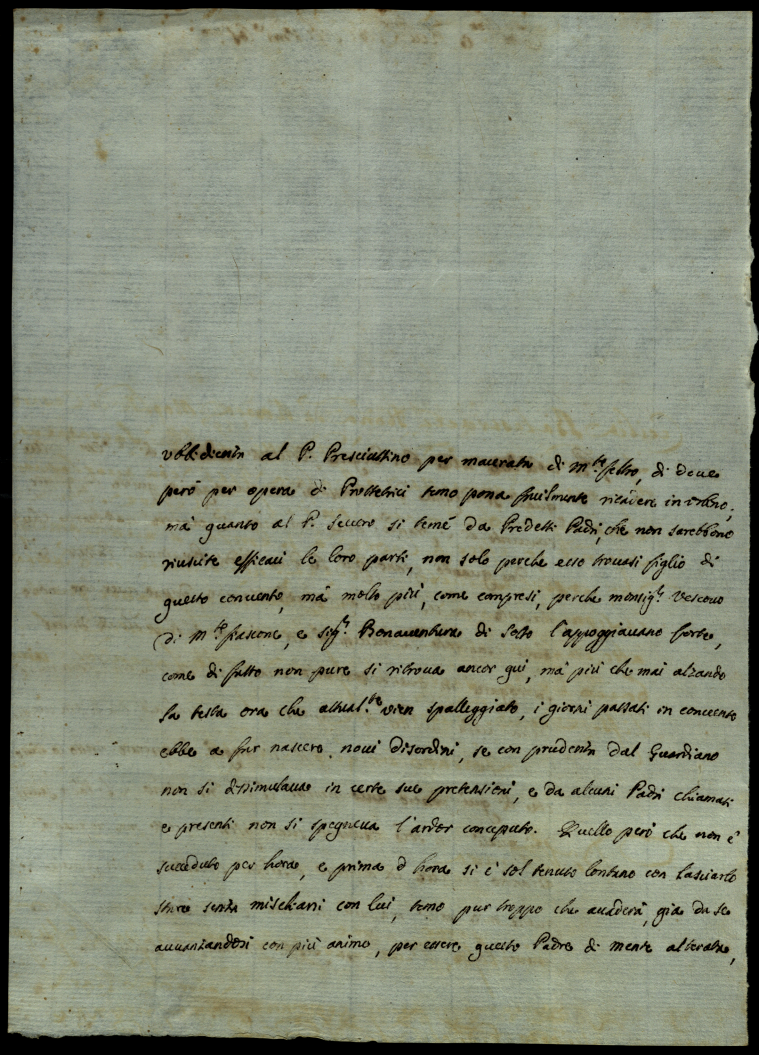 vbbidienza al P. Presciuttino per macerata di M.te feltro, di dove
però per opera di Protettrici temo possa facilmente ricadere in Urbino;
mà quanto al P. Severo si temé da Predetti Padri, che non sarebbono
riuscite efficaci le loro parti, non solo perche esso trovasi figlio di
questo convento, mà molto più, come compresi, perche monsig.r Vescovo
di M.te fiascone, e sig.r Bonaventura di Sesto l'appoggiavano forte,
come di fatto non pure si ritrova ancor qui, mà più che mai alzando
la testa ora che attual.te vien spalleggiato, i giorni passati in convento
ebbe a far nascere novi disordini, se con prudenza dal Guardiano
non si dissimulava in certe sue pretensioni, e da alcuni Padri chiamati
e presenti non si spegneva l'ardor conceputo. Quello però che non è
succeduto per hora, e prima d hora si è sol tenuto lontano con lasciarlo
stare senza mischiarsi con lui, temo pur troppo che accaderà, già da se
avvanzandosi con più animo, per essere questo Padre di mente alterata,